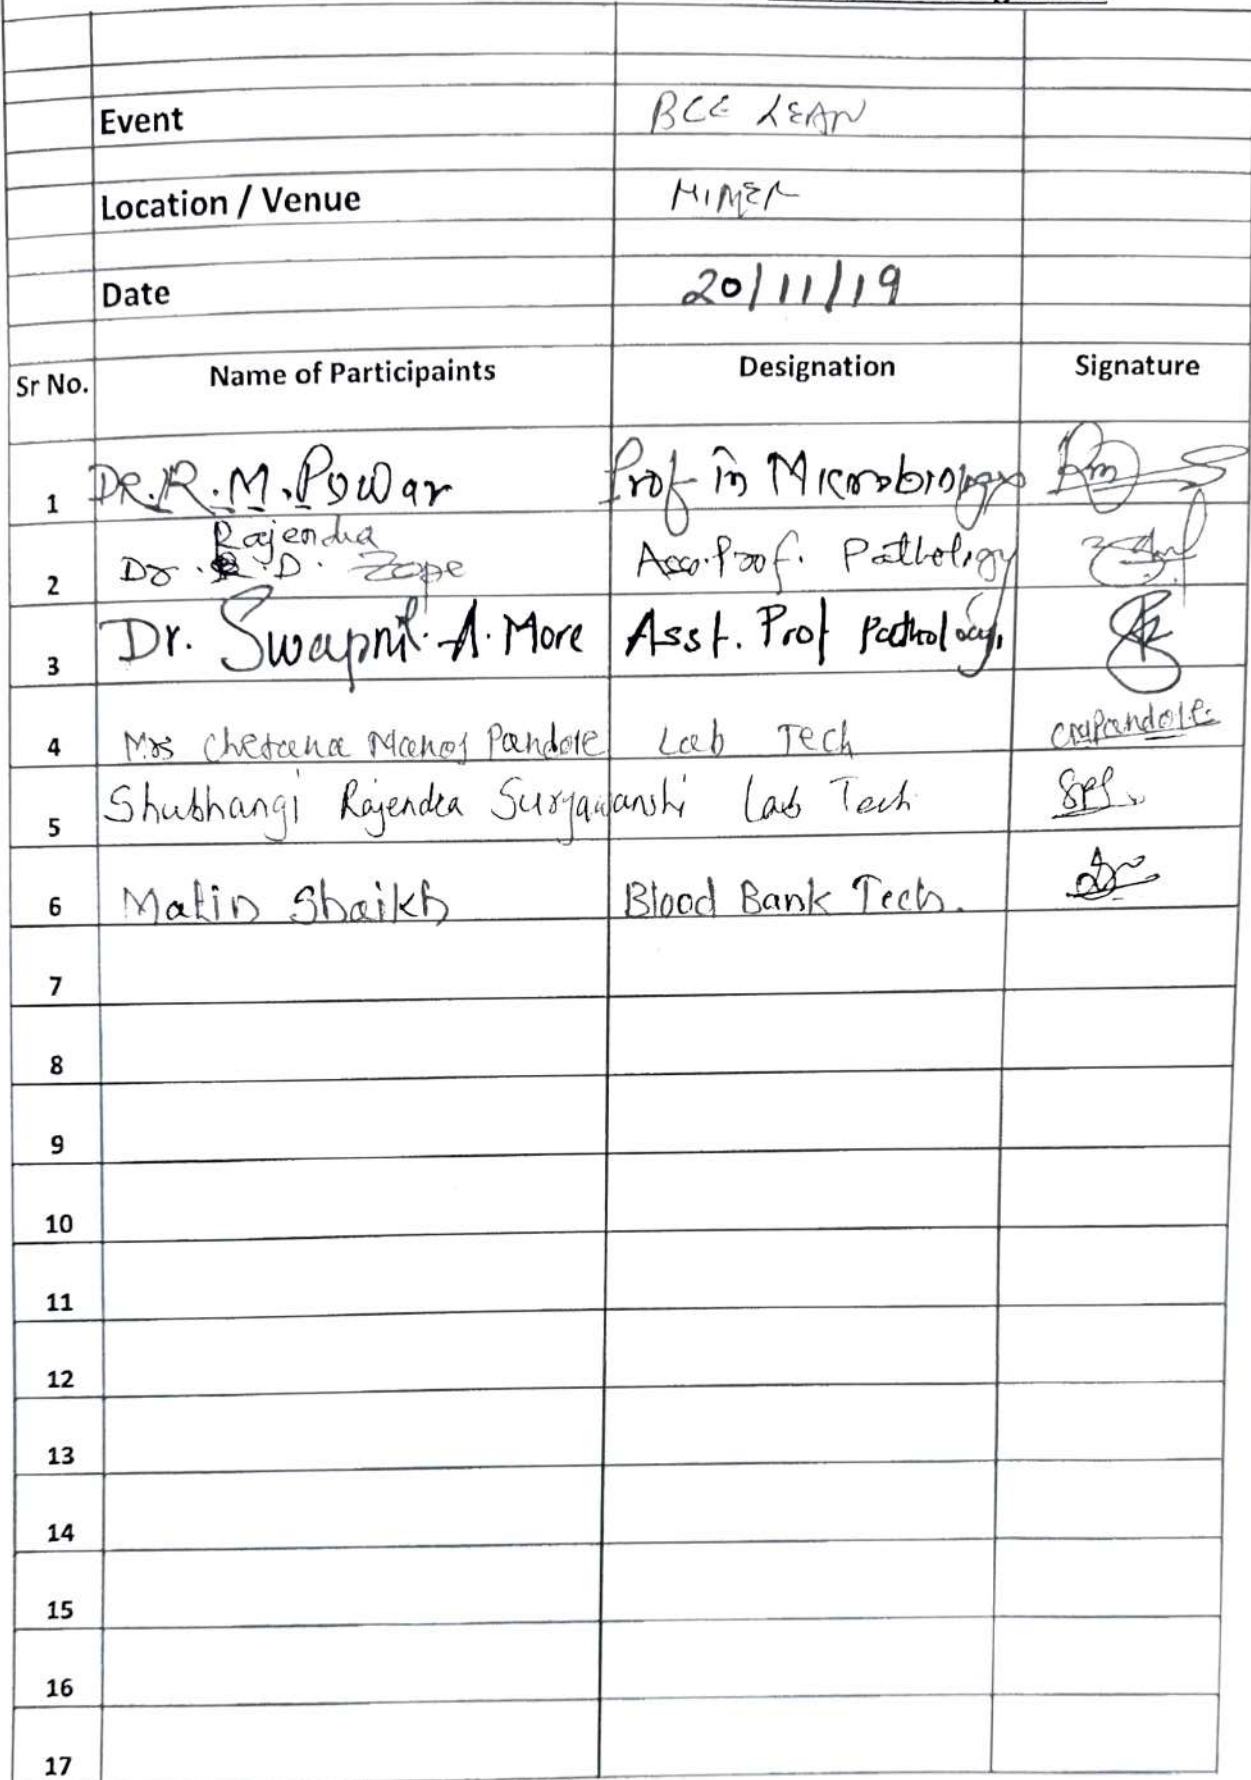 Event BCE LEAN
Location / Venue MIMER
Date 20/11/19
Sr No. Name of Participaints Designation Signature
1 DR. R. M. Powar Prof in Microbiology
Rajendra
2 Dr. D. Zope Asso. Prof. Pathology
3 Dr. Swapnil. A. More Asst. Prof Pathology,
4 Mrs Chetana Manoj Pandole Lab Tech Pandole
5 Shubhangi Rajendra Suryawanshi Lab Tech
6 Matin Shaikh Blood Bank Tech.
7
8
9
10
11
12
13
14
15
16
17